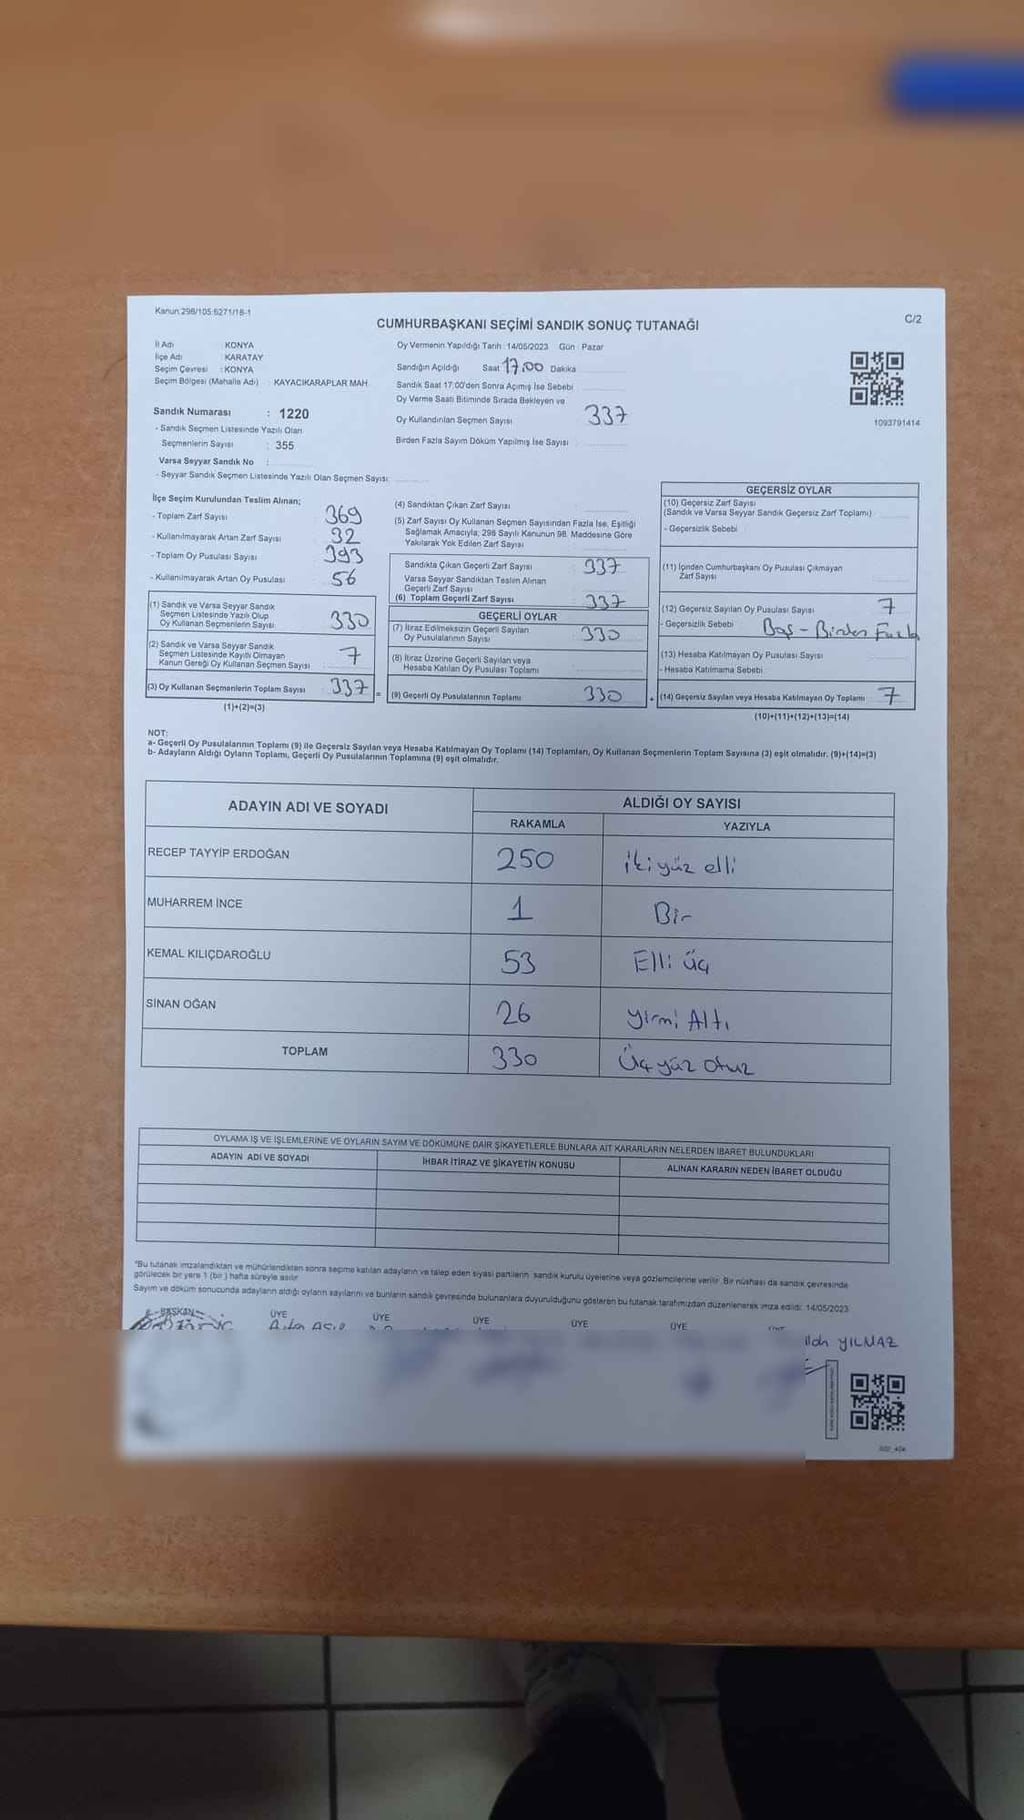 Kanun 298/105 6271/18-1
C/2
CUMHURBAŞKANI SEÇİMİ SANDIK SONUÇ TUTANAĞI
İl Adı KONYA
İlçe Adı KARATAY
Seçim Çevresi : KONYA
Seçim Bölgesi (Mahalle Adı) : KAYACIKARAPLAR MAH.
Sandık Numarası : 1220
- Sandık Seçmen Listesinde Yazılı Olan
Seçmenlerin Sayısı : 355
Varsa Seyyar Sandık No :
- Seyyar Sandık Seçmen Listesinde Yazılı Olan Seçmen Sayısı:
Oy Vermenin Yapıldığı Tarih : 14/05/2023 Gün : Pazar
Sandığın Açıldığı Saat 17:00 Dakika
Sandık Saat 17:00'den Sonra Açılmış İse Sebebi
Oy Verme Saati Bitiminde Sırada Bekleyen ve
Oy Kullandırılan Seçmen Sayısı 337
Birden Fazla Sayım Döküm Yapılmış İse Sayısı
1093791414
İlçe Seçim Kurulundan Teslim Alınan;
- Toplam Zarf Sayısı 369
- Kullanılmayarak Artan Zarf Sayısı 32
- Toplam Oy Pusulası Sayısı 393
- Kullanılmayarak Artan Oy Pusulası 56
(1) Sandık ve Varsa Seyyar Sandık
Seçmen Listesinde Yazılı Olup
Oy Kullanan Seçmenlerin Sayısı 330
(2) Sandık ve Varsa Seyyar Sandık
Seçmen Listesinde Kayıtlı Olmayan
Kanun Gereği Oy Kullanan Seçmen Sayısı 7
(3) Oy Kullanan Seçmenlerin Toplam Sayısı 337 =
(1)+(2)=(3)
(4) Sandıktan Çıkan Zarf Sayısı
(5) Zarf Sayısı Oy Kullanan Seçmen Sayısından Fazla İse, Eşitliği
Sağlamak Amacıyla, 298 Sayılı Kanunun 98. Maddesine Göre
Yakılarak Yok Edilen Zarf Sayısı
Sandıkta Çıkan Geçerli Zarf Sayısı 337
Varsa Seyyar Sandıktan Teslim Alınan
Geçerli Zarf Sayısı
(6) Toplam Geçerli Zarf Sayısı 337
GEÇERLİ OYLAR
(7) İtiraz Edilmeksizin Geçerli Sayılan
Oy Pusulalarının Sayısı 330
(8) İtiraz Üzerine Geçerli Sayılan veya
Hesaba Katılan Oy Pusulası Toplamı
(9) Geçerli Oy Pusulalarının Toplamı 330 +
GEÇERSİZ OYLAR
(10) Geçersiz Zarf Sayısı
(Sandık ve Varsa Seyyar Sandık Geçersiz Zarf Toplamı)
- Geçersizlik Sebebi
(11) İçinden Cumhurbaşkanı Oy Pusulası Çıkmayan
Zarf Sayısı
(12) Geçersiz Sayılan Oy Pusulası Sayısı 7
- Geçersizlik Sebebi Boş - Birden Fazla
(13) Hesaba Katılmayan Oy Pusulası Sayısı
- Hesaba Katılmama Sebebi
(14) Geçersiz Sayılan veya Hesaba Katılmayan Oy Toplamı 7
(10)+(11)+(12)+(13)=(14)
NOT:
a- Geçerli Oy Pusulalarının Toplamı (9) ile Geçersiz Sayılan veya Hesaba Katılmayan Oy Toplamı (14) Toplamları, Oy Kullanan Seçmenlerin Toplam Sayısına (3) eşit olmalıdır. (9)+(14)=(3)
b- Adayların Aldığı Oyların Toplamı, Geçerli Oy Pusulalarının Toplamına (9) eşit olmalıdır.
ADAYIN ADI VE SOYADI ALDIĞI OY SAYISI
RAKAMLA YAZIYLA
RECEP TAYYİP ERDOĞAN 250 ikiyüz elli
MUHARREM İNCE 1 Bir
KEMAL KILIÇDAROĞLU 53 Elli üç
SİNAN OĞAN 26 yirmi Altı
TOPLAM 330 Üçyüz otuz
OYLAMA İŞ VE İŞLEMLERİNE VE OYLARIN SAYIM VE DÖKÜMÜNE DAİR ŞİKAYETLERLE BUNLARA AİT KARARLARIN NELERDEN İBARET BULUNDUKLARI
ADAYIN ADI VE SOYADI İHBAR İTİRAZ VE ŞİKAYETİN KONUSU ALINAN KARARIN NEDEN İBARET OLDUĞU
*Bu tutanak imzalandıktan ve mühürlendikten sonra seçime katılan adayların ve talep eden siyasi partilerin sandık kurulu üyelerine veya gözlemcilerine verilir. Bir nüshası da sandık çevresinde
görülecek bir yere 1 (bir ) hafta süreyle asılır
Sayım ve döküm sonucunda adayların aldığı oyların sayılarını ve bunların sandık çevresinde bulunanlara duyurulduğunu gösteren bu tutanak tarafımızdan düzenlenerek imza edildi. 14/05/2023
BAŞKAN ÜYE ÜYE ÜYE ÜYE ÜYE
YILMAZ